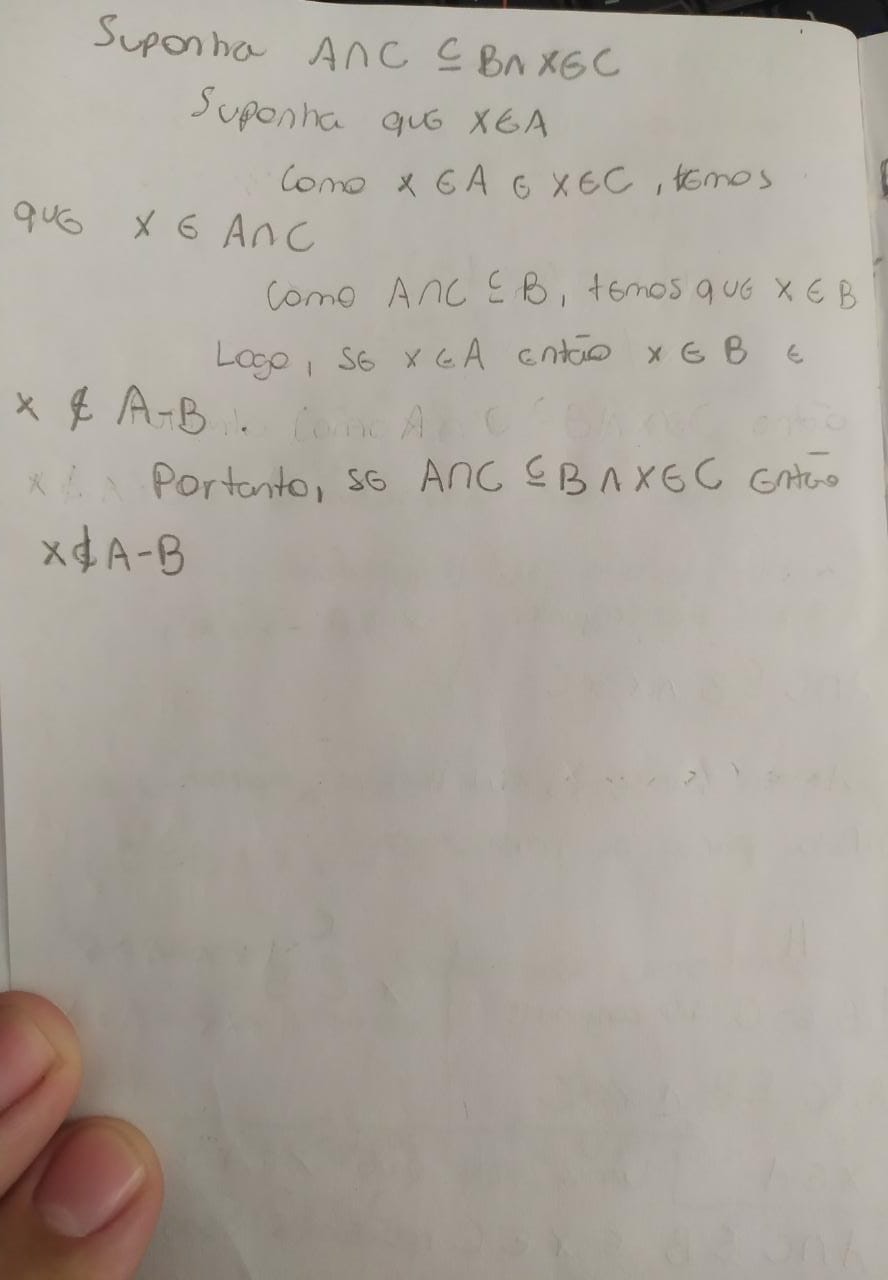 Suponha A∩C ⊆ B ∧ x∈C
Suponha que x∈A
Como x ∈ A e x∈C, temos
que x ∈ A∩C
Como A∩C ⊆ B, temos que x ∈ B
Logo, se x ∈ A então x ∈ B e
x ∉ A-B.
Portanto, se A∩C ⊆ B ∧ x∈C então
x∉A-B